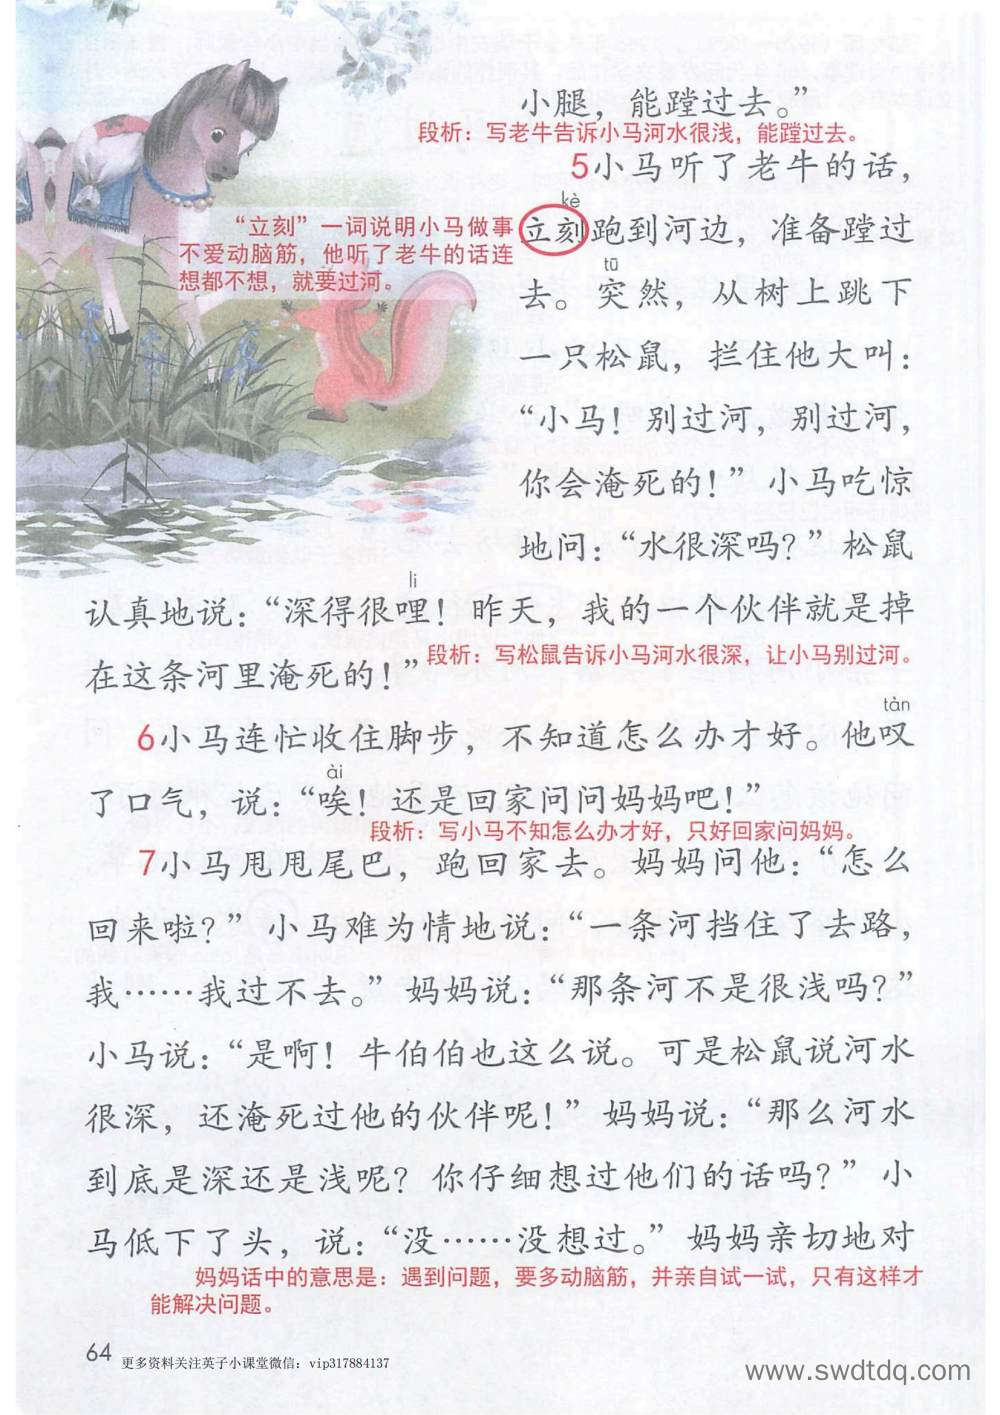 小腿，能蹚过去。”
段析：写老牛告诉小马河水很浅，能蹚过去。
5小马听了老牛的话，
kè
“立刻”一词说明小马做事
不爱动脑筋，他听了老牛的话连
想都不想，就要过河。
立刻跑到河边，准备蹚过
tū
去。突然，从树上跳下
一只松鼠，拦住他大叫：
“小马！别过河，别过河，
你会淹死的！”小马吃惊
地问：“水很深吗？”松鼠
li
认真地说：“深得很哩！昨天，我的一个伙伴就是掉
段析：写松鼠告诉小马河水很深，让小马别过河。
在这条河里淹死的！”
tàn
6小马连忙收住脚步，不知道怎么办才好。他叹
ài
了口气，说：“唉！还是回家问问妈妈吧！”
段析：写小马不知怎么办才好，只好回家问妈妈。
7小马甩甩尾巴，跑回家去。妈妈问他：“怎么
回来啦？”小马难为情地说：“一条河挡住了去路，
我……我过不去。”妈妈说：“那条河不是很浅吗？”
小马说：“是啊！牛伯伯也这么说。可是松鼠说河水
很深，还淹死过他的伙伴呢！”妈妈说：“那么河水
到底是深还是浅呢？你仔细想过他们的话吗？”小
马低下了头，说：“没……没想过。”妈妈亲切地对
妈妈话中的意思是：遇到问题，要多动脑筋，并亲自试一试，只有这样才
能解决问题。
64
更多资料关注英子小课堂微信：vip317884137
www.swdtdq.com